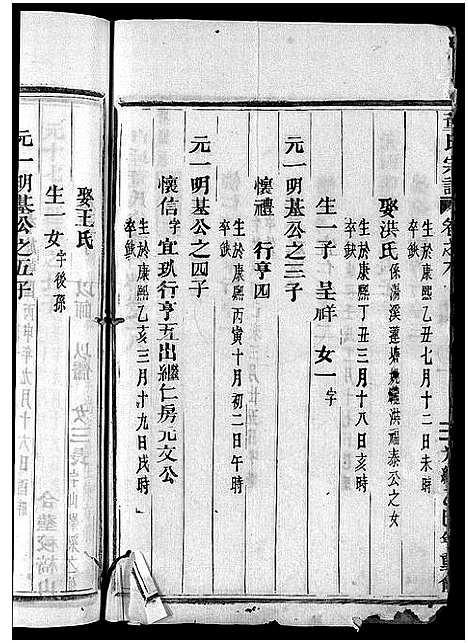 生於康熙乙亥七月十二日未時
卒缺
娶洪氏係湯溪蓮塘洪福泰公之女
生於康熙丁丑三月十八日亥時
卒缺
生一子呈祥 女一字
元一明基公之三子
懷禮 行亨四
生於康熙丙寅十月初二日午時
卒缺
元一明基公之四子
懷信字宜玖行亨五出繼仁房元文公
生於康熙乙亥三月十九日戌時
卒缺
娶王氏
生一女字後孫
元一明基公之五子